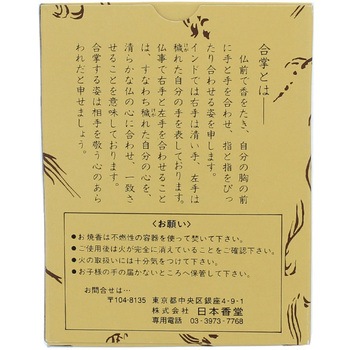 合掌とは――
仏前で香をたき、自分の胸の前
に手と手を合わせ、指と指をぴっ
たり合わせる姿を申します。
インドでは右手は清い手、左手は
穢れた自分の手を表しております。
仏事で右手と左手を合わせること
は、すなわち穢れた自分の心を、
清らかな仏の心に合わせ、一致さ
せることを意味しております。
合掌する姿は相手を敬う心のあら
われだと申せましょう。
〈お願い〉
●お焼香は不燃性の容器を使って焚いて下さい。
●ご使用後は火が完全に消えていることをご確認下さい。
●火の取扱いには十分気をつけて下さい。
●お子様の手の届かないところへ保管して下さい。
お問合せは…
〒104-8135 東京都中央区銀座4-9-1
株式会社 日本香堂
専用電話 03-3973-7768